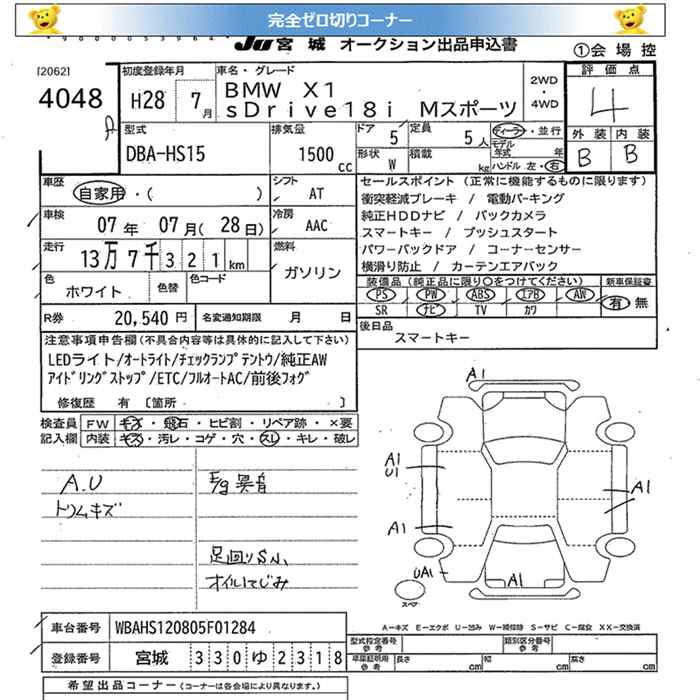 完全ゼロ切りコーナー
JU 宮城 オークション出品申込書
①会場控
[2062]
4048
初度登録年月
H28 7月
車名・グレード
BMW X1
sDrive18i Mスポーツ
2WD
・
4WD
評価点
4
外装 内装
B B
型式
DBA-HS15
排気量
1500 cc
ドア 5
定員 5人
形状 W
積載 kg
ディーラー・並行
モデル年式 年
ハンドル 左・右
車歴
自家用・( )
シフト
AT
車検
07年 07月(28日)
冷房
AAC
走行
13万7千321km
燃料
ガソリン
色
ホワイト
色替
色コード
R券 20,540円
名変通知期限 月 日
セールスポイント (正常に機能するものに限ります)
衝突軽減ブレーキ / 電動パーキング
純正HDDナビ / バックカメラ
スマートキー / プッシュスタート
パワーバックドア / コーナーセンサー
横滑り防止 / カーテンエアバック
装備品(純正品に限り○をつけてください)
PS PW ABS エアB AW
SR ナビ TV カワ
新車保証書
有 無
後日品
スマートキー
注意事項申告欄(不具合内容等は具体的に記入して下さい)
LEDライト/オートライト/チェックランプテントウ/純正AW
アイドリングストップ/ETC/フルオートAC/前後フォグ
修復歴 有 〔箇所
検査員
記入欄
FW キズ・飛石・ヒビ割・リペア跡・×要
内装 キズ・汚レ・コゲ・穴・スレ・キレ・破レ
A.U
トリムキズ
E/g異音
足回りS.N.
オイルにじみ
A1
A1
U1
A1
A1
UA1
A1
スペア
A―キズ E―エクボ U―凹み W―補修跡 S―サビ C―腐食 XX―交換済
車台番号 WBAHS120805F01284
登録番号 宮城 330ゆ2318
型式指定番号
参考
類別区分番号
参考
車庫証明用
参考
長さ cm
幅 cm
高さ cm
希望出品コーナー (コーナーは各会場により異なります。)